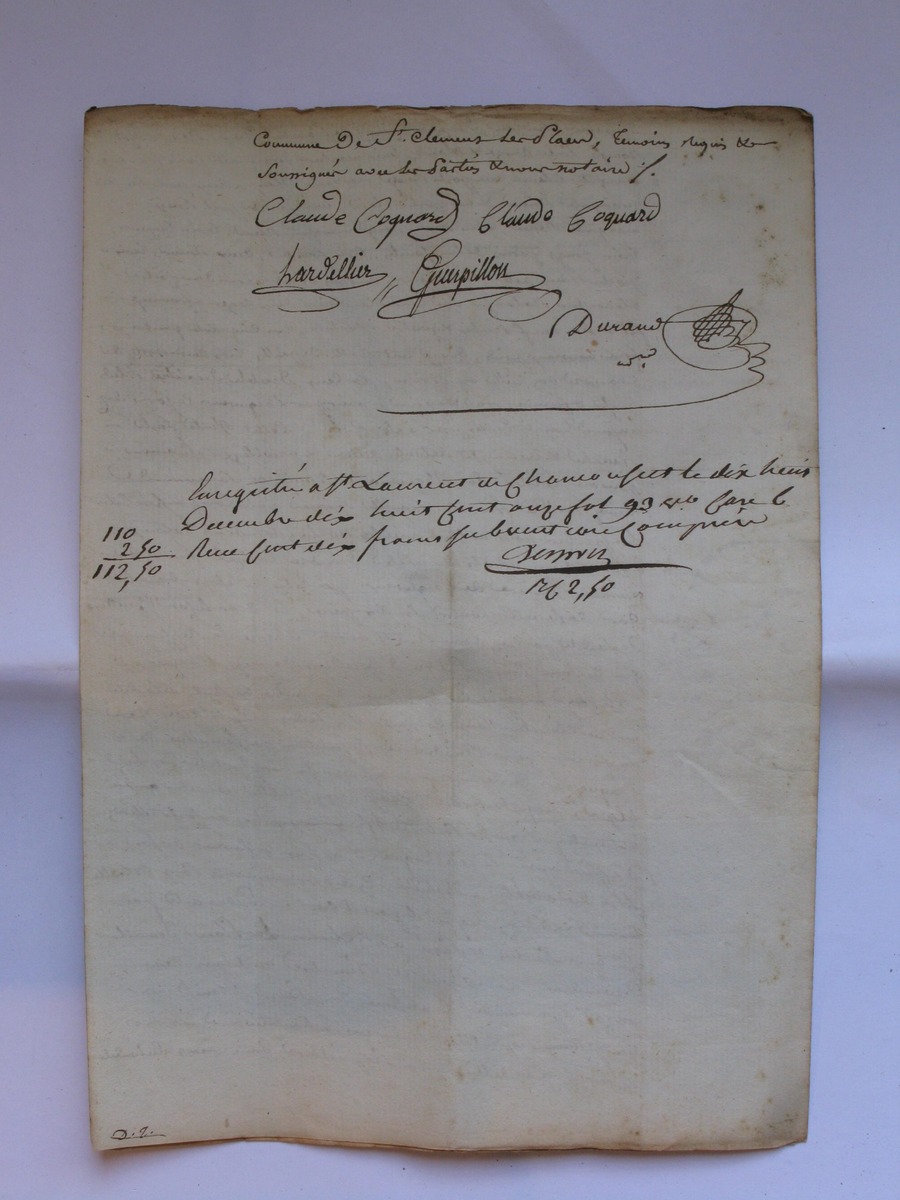 Commune De St. Clement Les Places, temoins requis &
soussignés avec les parties & nous notaire ./.
Claude Coquard Claude Coquard
hardellier Guerpillon
Durand
Enregistré a St. Laurent de Chamousset le dix huit
Decembre dix huit cent onze fol 93 vo Case 6
Recu cent dix francs subvention Comprise
110
2 50
112,50
162,50
D. 2.